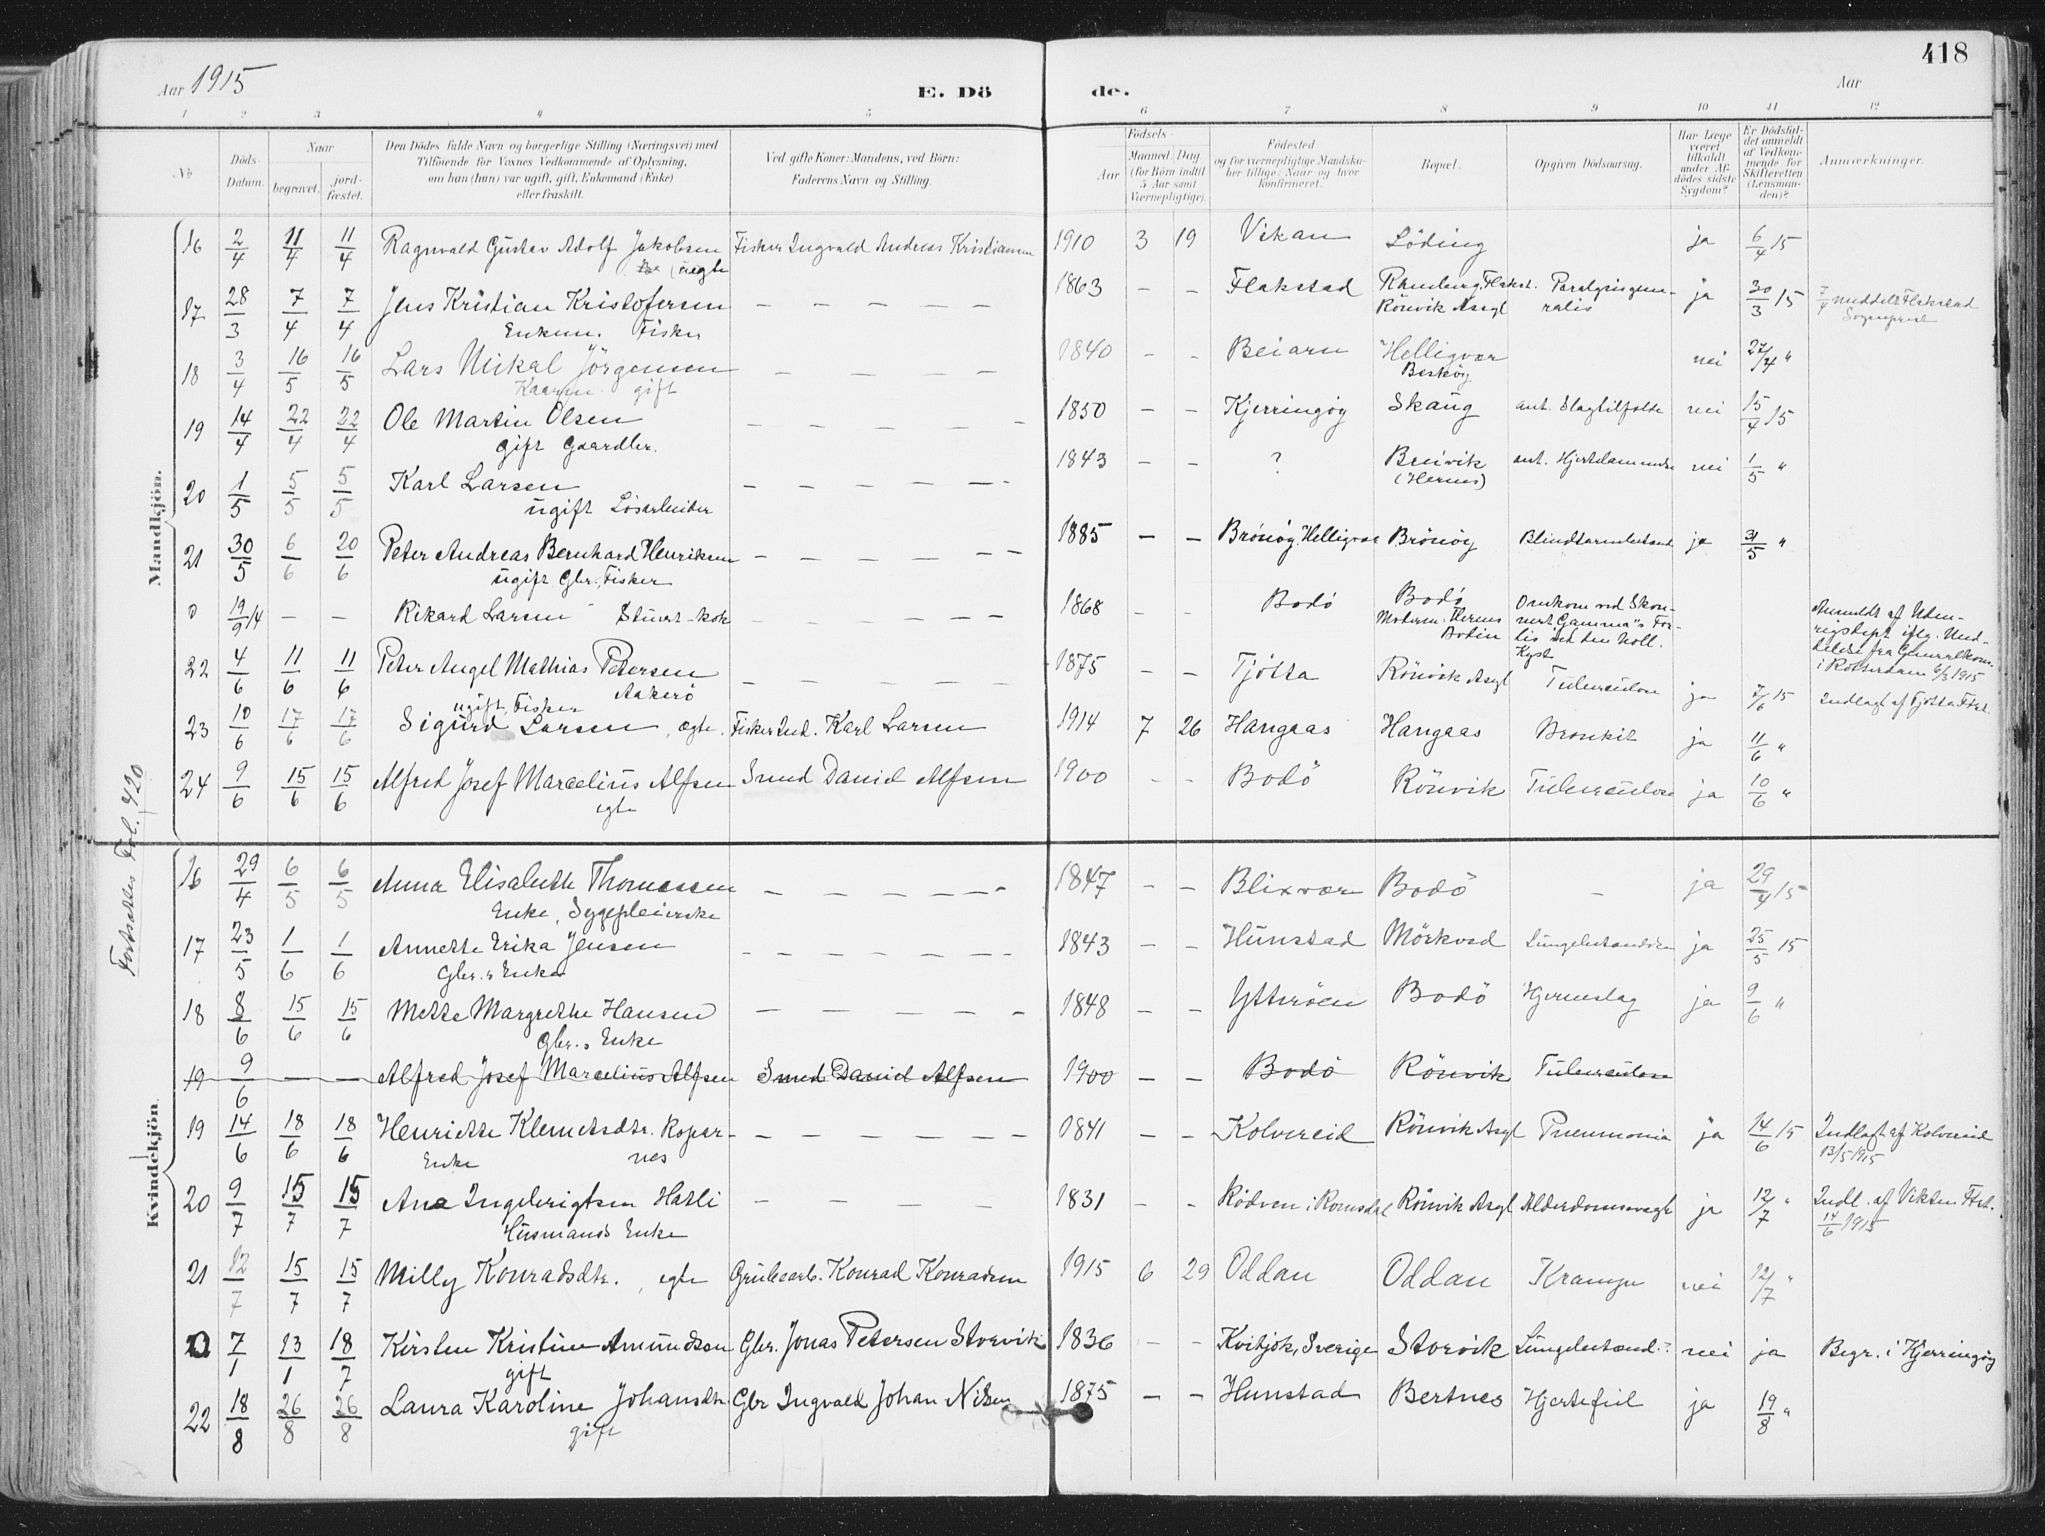 418
Aar 1915 E. Dö de. Aar
1 2 3 4 5 6 7 8 9 10 11 12
№
Döds-Datum.
Naar
begravet. jordfæstet.
Den Dödes fulde Navn og borgerlige Stilling (Næringsvei) med
Tilföiende for Voxnes Vedkommende af Oplysning,
om han (hun) var ugift, gift, Enkemand (Enke)
eller fraskilt.
Ved gifte Koner: Mandens, ved Börn:
Faderens Navn og Stilling.
Födsels-
Aar Maaned Dag
(for Börn indtil
5 Aar samt
Værnepligtige).
Födested
og for værnepligtige Mandskaber tillige: Naar og hvor
konfirmeret.
Bopæl.
Opgiven Dödsaarsag.
Har Læge
været
tilkaldt
under Afdödes sidste
Sygdom?
Er Dödsfaldet anmeldt
af Vedkommende for
Skifteretten
(Lensmanden)?
Anmærkninger.
Mandkjön.
16 2/4 11/4 11/4 Ragnvald Gustav Adolf Jakobsen Fisker Ingvald Andreas Kristiansen 1910 3 19 Vikan Löding ja 6/4 15
uegte
17 28/3 7/4 7/4 Jens Kristian Kristofersen — — — — — 1863 — — Flakstad Ramberg, Flakst. Paralysis gene- ja 30/3 15 7/4 meddelt Flakstad
Enkem. Fisker Rönvik Asyl ralis Sogneprest
18 3/4 16/5 16/5 Lars Mikal Jörgensen — — — — — 1840 — — Beiarn Helligvær nei 27/4 "
Kaarm. gift
19 14/4 22/4 22/4 Ole Martin Olsen — — — — — — 1850 — — Kjerringöy Skaug ant. Slagtilfælde nei 15/4 15
gift Gaardbr.
20 1/5 5/5 5/5 Karl Larsen — — — — — — 1843 — — ? Breivik ant. Hjertelammelse nei 1/5 "
ugift Lösarbeider (Hernes)
21 30/5 6/6 20/6 Peter Andreas Bernhard Henriksen — — — — — — 1885 — — Brönöy, Helligvær Brönöy Blindtarmbetænd ja 31/5 "
ugift Gbr., Fisker
0 19/9 14 — — Rikard Larsen Stuert-kok — — — — — 1868 — — Bodö Bodö Omkom ved Skon- Anmeldt af Uden-
Moderen: Hernes nert "Gamma"s For- rigsdept. iflg. Med-
Bodin lis ved den holl. delelse fra Generalkons.
Kyst i Rotterdam 6/3 1915
22 4/6 11/6 11/6 Peter Angel Mathias Petersen — — — — — 1875 — — Tjötta Rönvik Asyl Tuberculose ja 7/6 15 Indlagt af Tjötta Fst.
ugift, Fisker Aakerö
23 10/6 17/6 17/6 Sigurd Larsen, ægte. Fisker Ind. Karl Larsen 1914 7 26 Hangaas Hangaas Bronkit ja 11/6 "
24 9/6 15/6 15/6 Alfred Josef Marcelius Alfsen Smed Daniel Alfsen 1900 — — Bodö Rönvik Tuberculose ja 10/6 "
egte
Fortsættes Fol. 420
Kvindekjön.
16 29/4 6/5 6/5 Anna Elisabeth Thomassen — — — — — — 1847 — — Blixvær Bodö — ja 29/4 15
Enke, Sygepleierske
17 23/5 1/6 1/6 Annette Erika Jensen — — — — — — — 1843 — — Hunstad Mörkved Lungebetændelse ja 25/5 15
Gbr.s Enke
18 8/6 15/6 15/6 Mette Margrethe Hansen — — — — — 1848 — — Ytteröen Bodö Hjerneslag ja 9/6 "
Gbr.s Enke
19 9/6 — — Alfred Josef Marcelius Alfsen Smed Daniel Alfsen 1900 — — Bodö Rönvik Tuberculose
19 14/6 18/6 18/6 Henriette Klemetsdtr. Ropar- — — — — — — 1841 — — Kolvereid Rönvik Asyl Pneumonia ja 14/6 15 Indlagt af Kolvereid
Enke nes 13/5 1915
20 9/7 15/7 15/7 Ane Ingebrigtsen Hatli — — — — 1831 — — Rödven i Romsdal Rönvik Asyl Alderdomssvagh ja 12/7 " Indl. af Vikten Fst.
Husmands Enke 14/6 1915
21 12/7 15/7 15/7 Milly Konradsdtr., egte Grubearb. Konrad Konradsen 1915 6 29 Oddan Oddan Krampe nei 12/7 "
0 7/1 13/1 18/7 Kirsten Kristine Amundsen Gbr. Jonas Petersen Storvik 1836 — — Kvitjok, Sverige Storvik Lungebetænd.? nei ja Begr. i Kjerringöy
gift
22 18/8 26/8 26/8 Laura Karoline Johansdtr. Gbr Ingvald Johan Nilsen 1875 — — Hunstad Bertnes Hjertefeil ja 19/8 "
gift